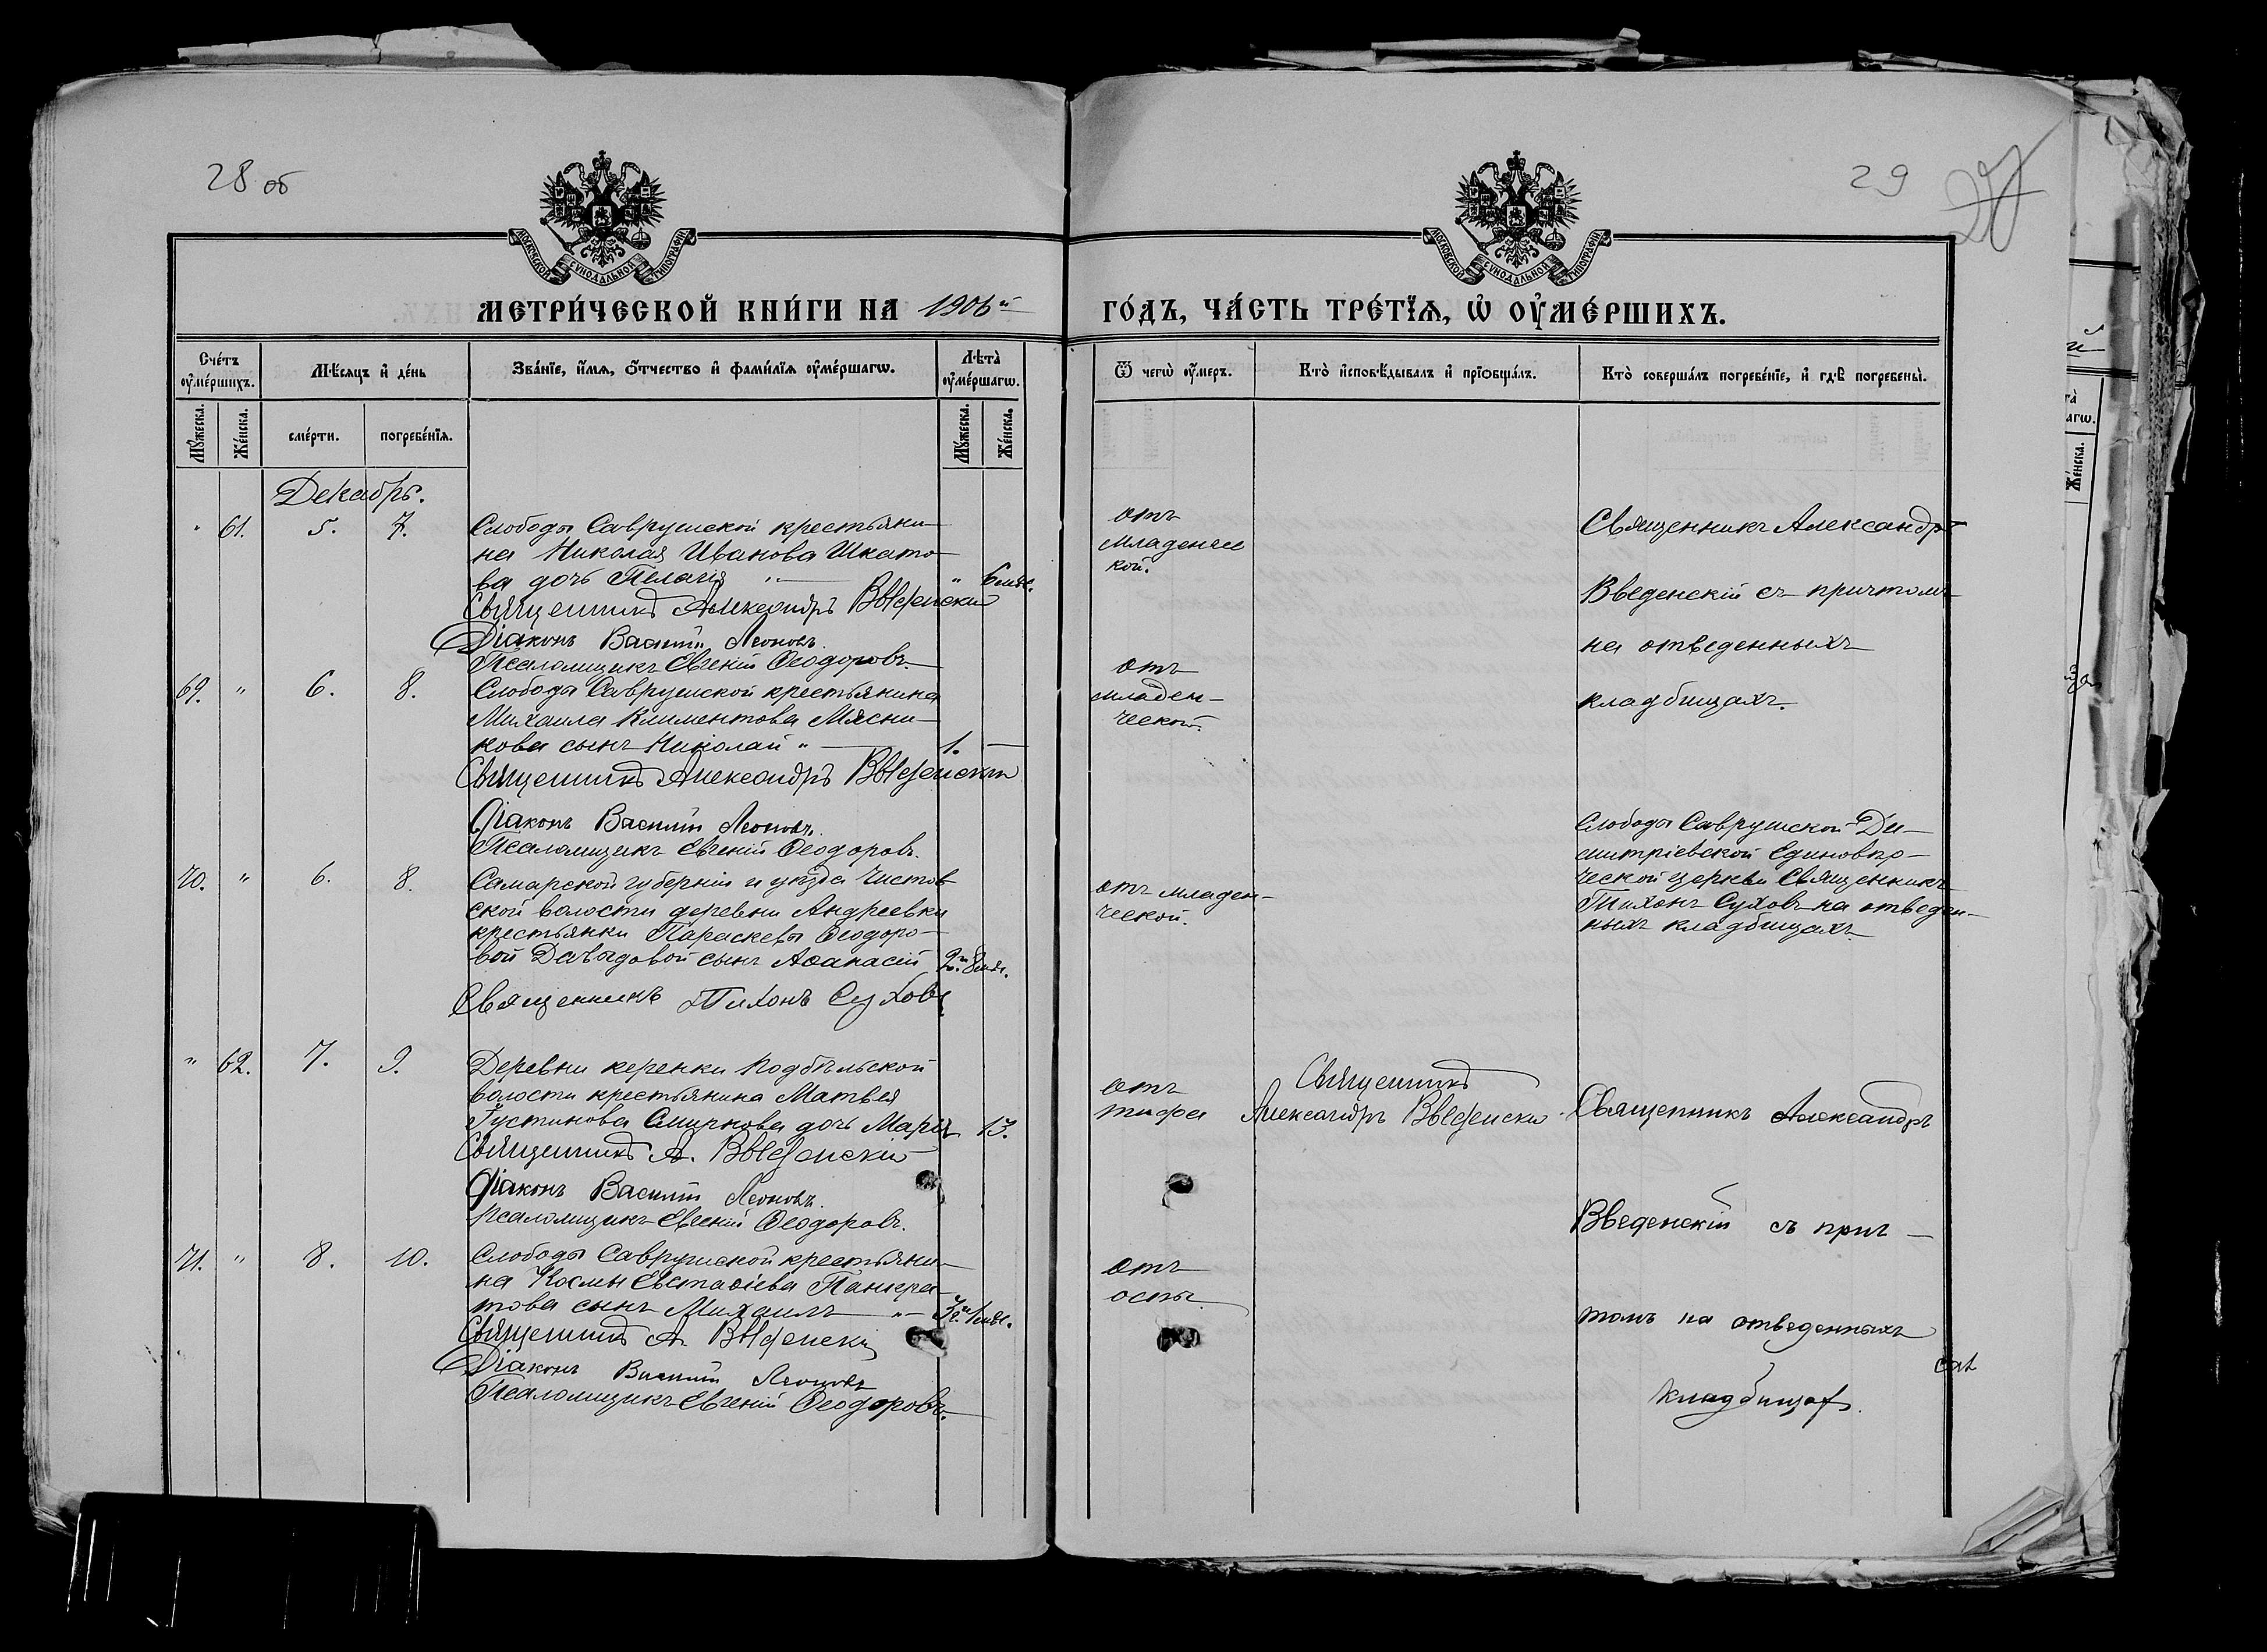 28 об
29
27
МОСКОВСКОЙ СѴНОДАЛЬНОЙ ТИПОГРАФІИ
МОСКОВСКОЙ СѴНОДАЛЬНОЙ ТИПОГРАФІИ
МЕТРИ́ЧЕСКОЙ КНИ́ГИ НА 1906й
ГО́ДЪ, ЧА́СТЬ ТРЕ́ТЇѦ, Ѡ҆ ОУ҆МЕ́РШИХЪ.
Сче́тъ оу҆ме́ршихъ.
Мѣ́сяцъ и҆ де́нь
Зва́нїе, и҆́мѧ, ѻ҆́тчество и҆ фами́лїѧ оу҆ме́ршагѡ.
Лѣта̀ оу҆ме́ршагѡ.
Мꙋ́жеска.
Же́нска.
сме́рти.
погребе́нїѧ.
Мꙋ́жеска.
Же́нска.
Ѿ чегѡ̀ оу҆́меръ.
Кто̀ и҆сповѣ́дывалъ и҆ прїѡбща́лъ.
Кто̀ соверша́лъ погребе́нїе, и҆ гдѣ̀ погребены̀.
Декабрь.
" 61. 5. 7.
Слободы Саврушской крестьяни-
на Николая Иванова Шкато-
ва дочь Пелагія " " 6 мѣс.
Священникъ Александръ Введенскій
Діаконъ Василій Леоновъ.
Псаломщикъ Евгеній Ѳеодоровъ.
отъ
младенчес
кой.
Священникъ Александръ
Введенскій съ причтомъ
на отведенныхъ
кладбищахъ.
69. " 6. 8.
Слободы Саврушской крестьянина
Михаила Климентова Мясни-
кова сынъ Николай " 1.
Священникъ Александръ Введенскій
Діаконъ Василій Леоновъ.
Псаломщикъ Евгеній Ѳеодоровъ.
отъ
младен-
ческой.
70. " 6. 8.
Самарской губерніи и уѣзда Чистов
ской волости деревни Андреевки
крестьянки Параскевы Ѳеодоро-
вой Давыдовой сынъ Аѳанасій 2г. 8 мѣс.
Священникъ Тихонъ Суховъ
отъ младен-
ческой.
Слободы Саврушской Ди-
митріевской Единовѣр-
ческой церкви Священникъ
Тихонъ Суховъ на отведен-
ныхъ кладбищахъ.
" 62. 7. 9.
Деревни Керенки Подбѣльской
волости крестьянина Матвея
Густинова Смирнова дочь Марія 13.
Священникъ А. Введенскій
Діаконъ Василій Леоновъ.
Псаломщикъ Евгеній Ѳеодоровъ.
отъ
тифа
Священникъ
Александръ Введенскій
Священникъ Александръ
Введенскій съ прич-
томъ на отведенныхъ
кладбищахъ.
71. " 8. 10.
Слободы Саврушской крестьяни-
на Космы Евстаѳіева Панкра-
това сынъ Михаилъ " 3г. 1 мѣс.
Священникъ А. Введенскій
Діаконъ Василій Леоновъ
Псаломщикъ Евгеній Ѳеодоровъ.
отъ
оспы.